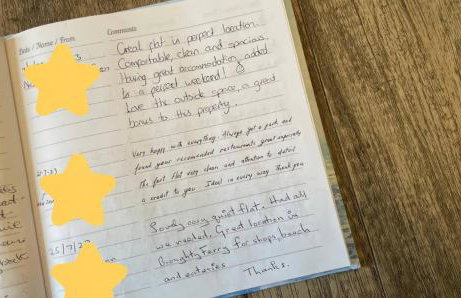 Date / Name / From
Comments
Great flat in perfect location.
Comfortable, clean and spacious.
Having great accommodation added
to a perfect weekend!
Love the outside space, a great
bonus to this property.
Very happy with everything. Always got a park and
found your recommended restaurants great especially
the flat very clean and attention to detail
a credit to you. Ideal in every way Thank you
25/7/2
Lovely cosy quiet flat. Had all
we needed. Great location in
Broughty Ferry for shops, beach
and eateries
Thanks.